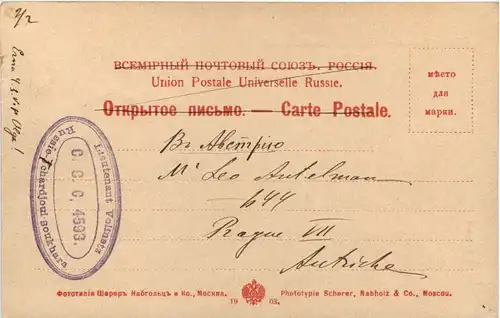 2/2
ВСЕМІРНЫЙ ПОЧТОВЫЙ СОЮЗЪ. РОССІЯ.
Union Postale Universelle Russie.
Открытое письмо. — Carte Postale.
мѣсто
для
марки.
Въ Австрiю
Mr Leo Antelman
644
Prague VII
Autriche
Lieutenant Volnats
C. C. C. 4593.
Russie Tchardjoui-Boukhara
Фототипія Шереръ, Набгольцъ и Ко., Москва.
1903.
Phototypie Scherer, Nabholz & Co., Moscou.